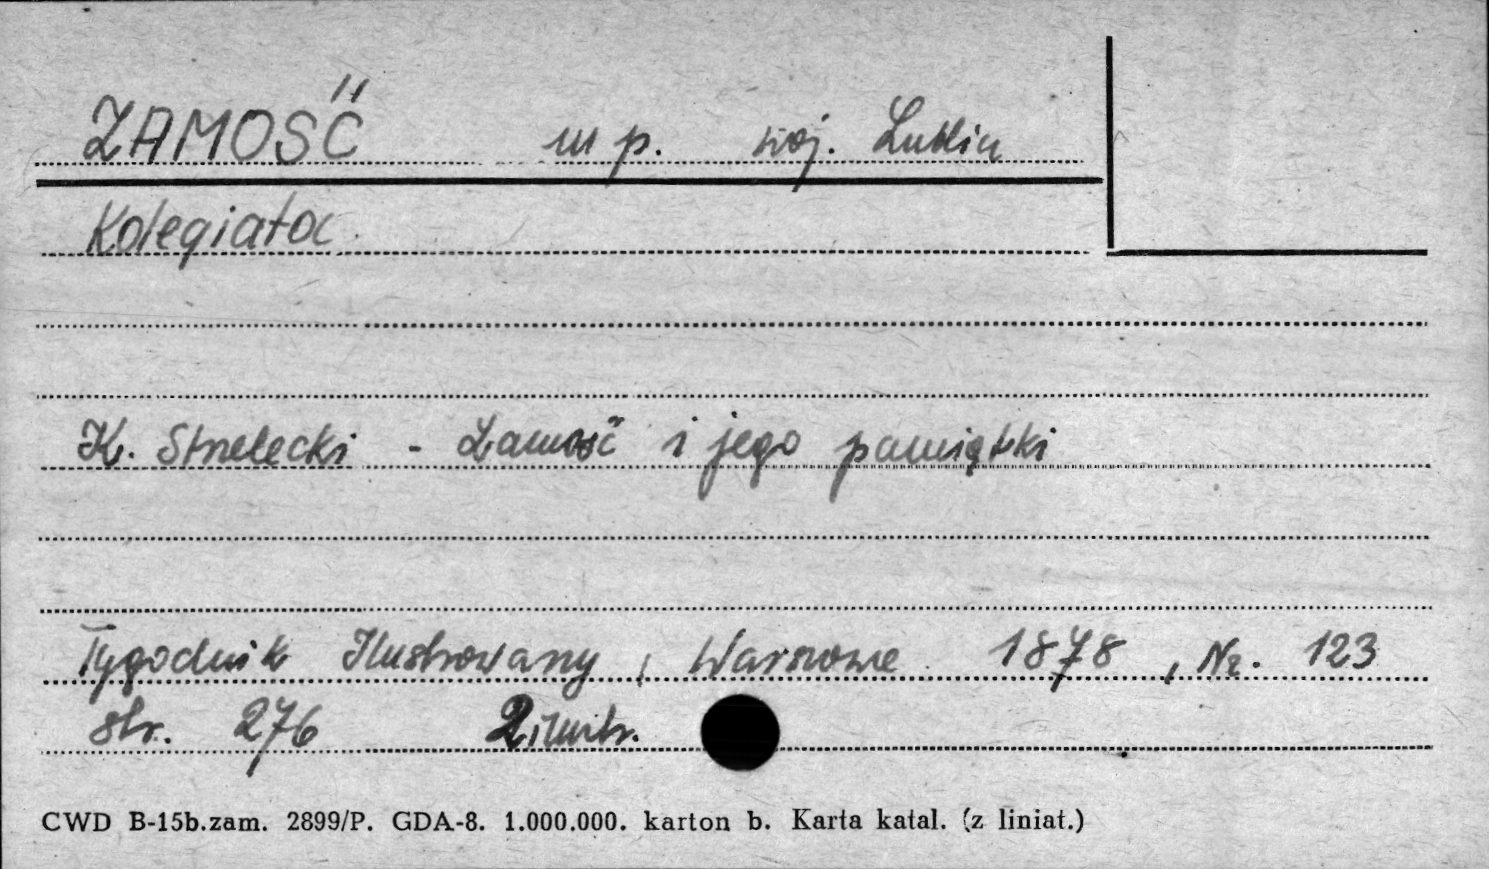 ZAMOŚĆ m p. woj. Lublin
Kolegiata
K. Strzelecki - Zamość i jego pamiątki
Tygodnik Ilustrowany, Warszawa 1878, Nr. 123
str. 276 2 ilustr.
CWD B-15b.zam. 2899/P. GDA-8. 1.000.000. karton b. Karta katal. (z liniat.)